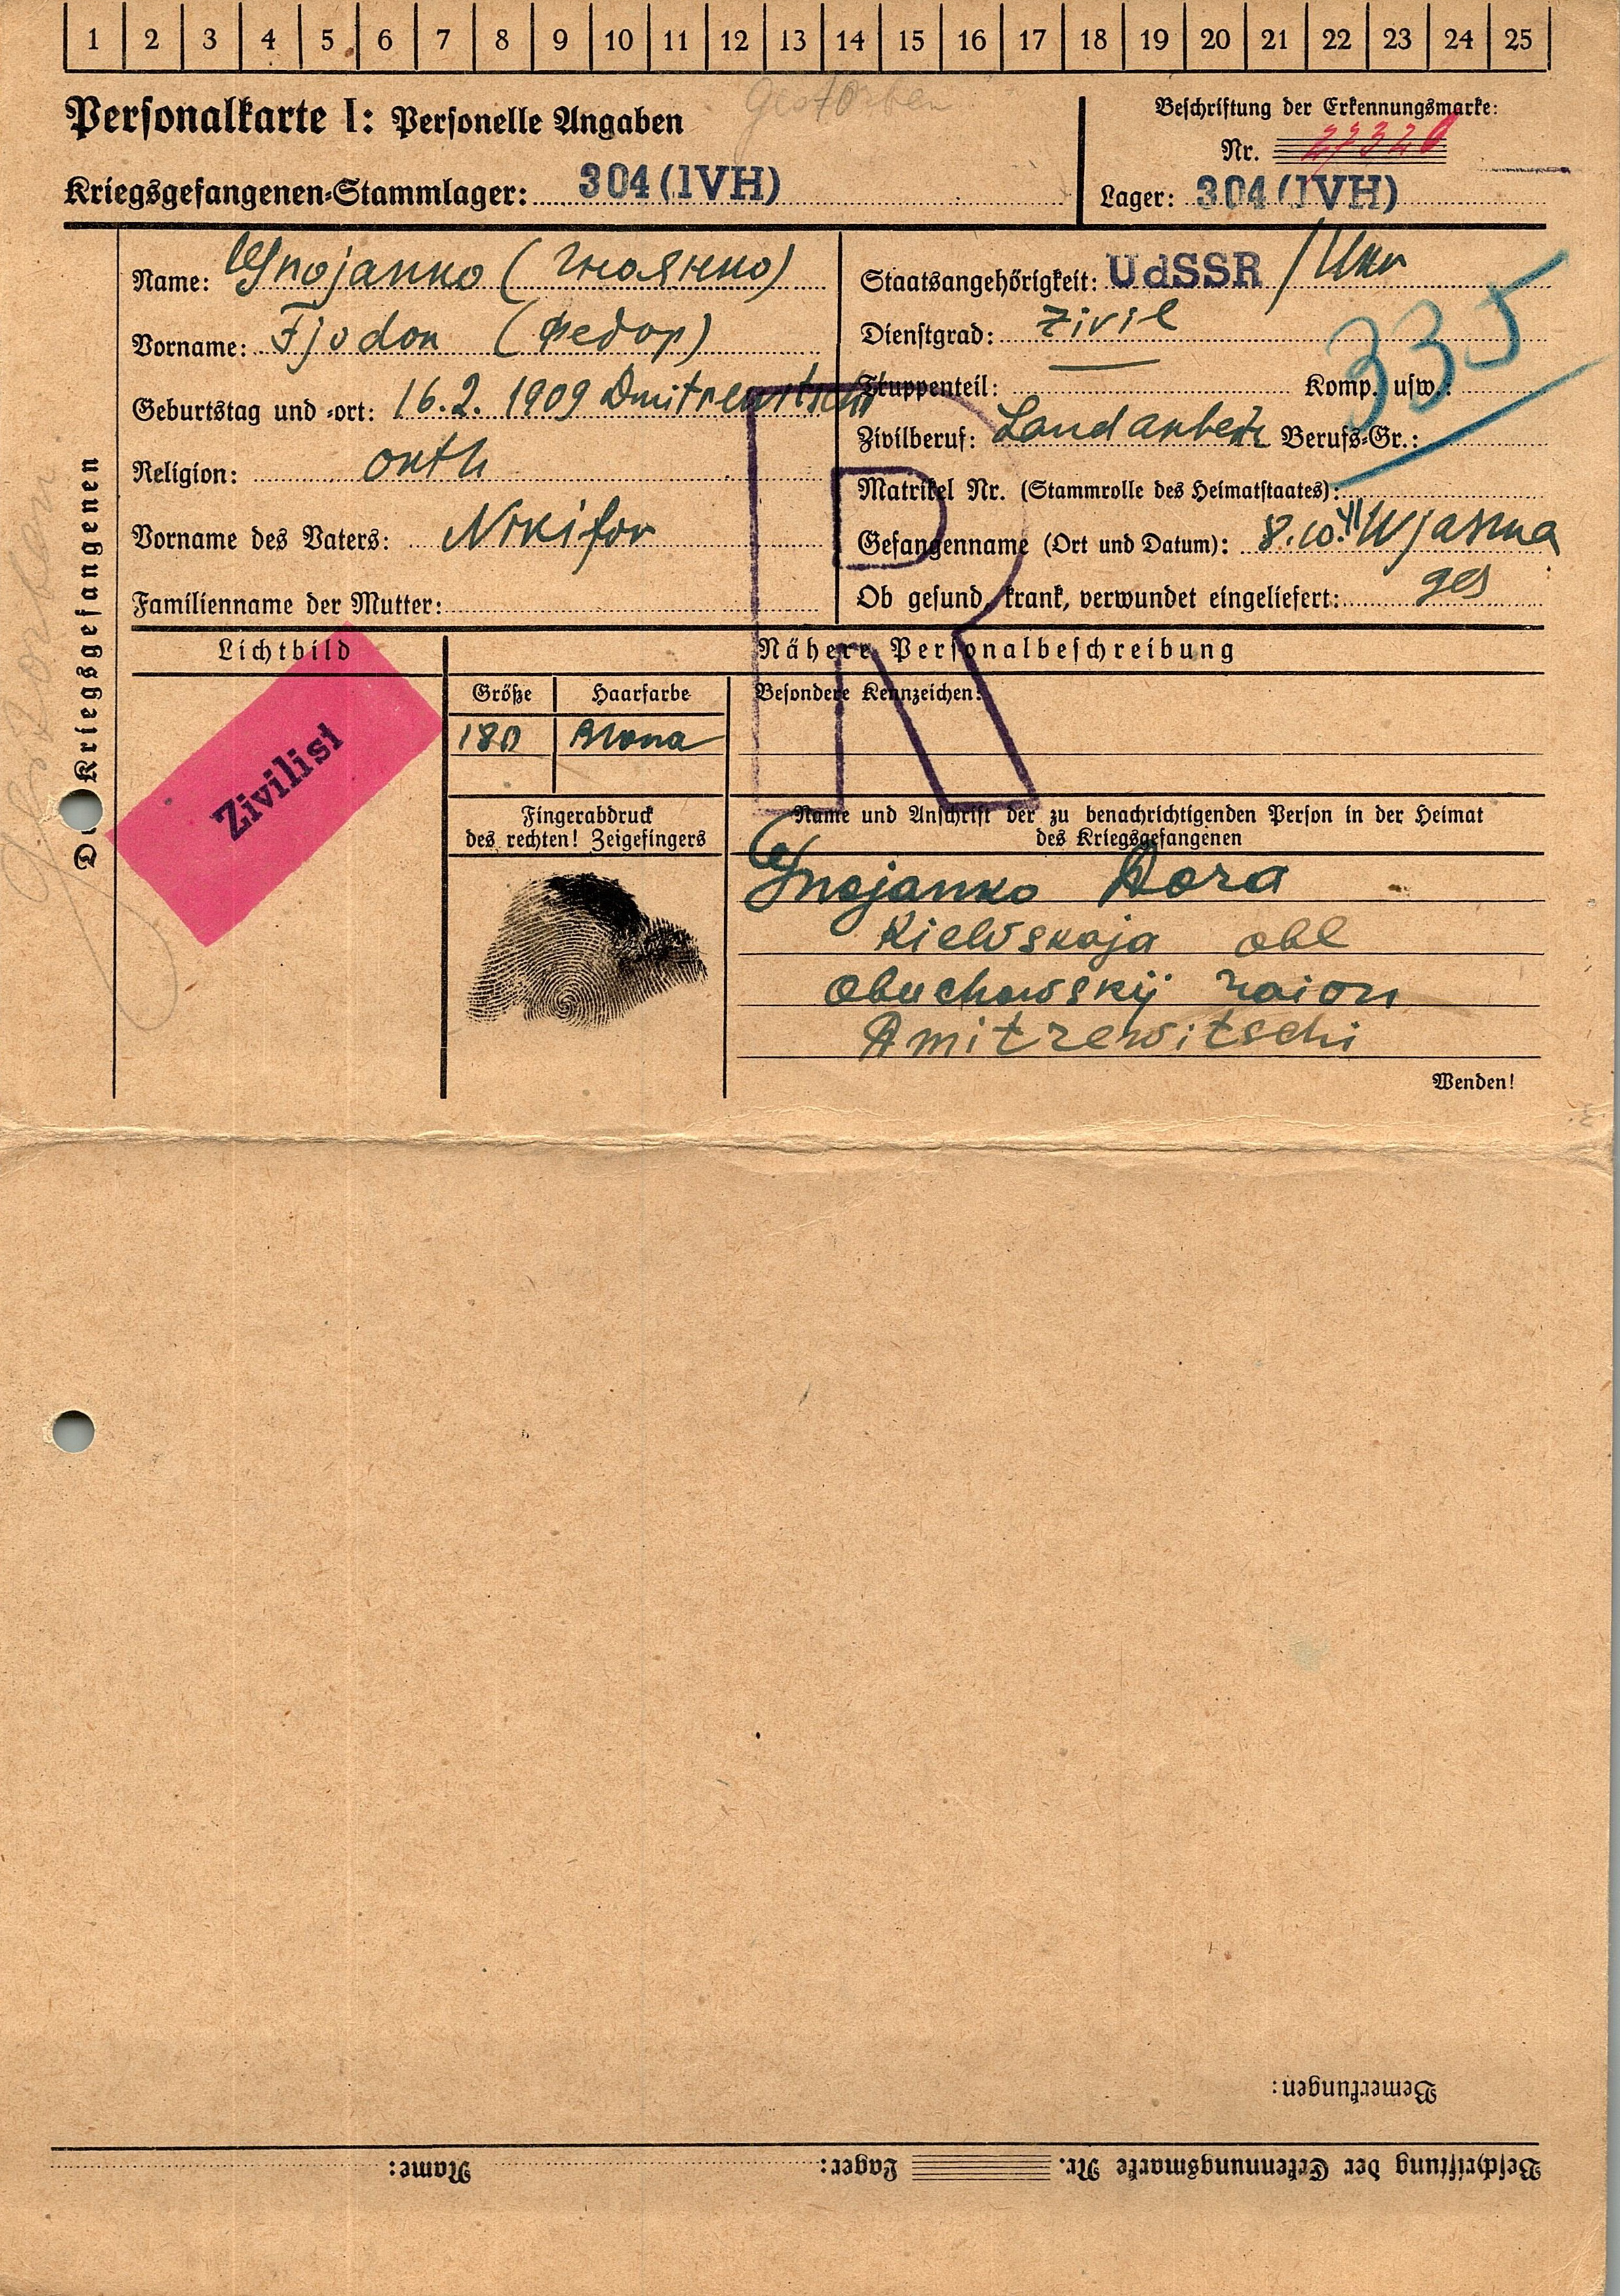 1 2 3 4 5 6 7 8 9 10 11 12 13 14 15 16 17 18 19 20 21 22 23 24 25
gestorben
Personalkarte I: Personelle Angaben
Kriegsgefangenen-Stammlager: 304 (IVH)
Beschriftung der Erkennungsmarke:
Nr. 27326
Lager: 304 (IVH)
Des Kriegsgefangenen
gestorben
Name: Gnojanko (Гноянко)
Vorname: Fjodor (Федор)
Geburtstag und -ort: 16.2. 1909 Dmitrewitschi
Religion: orth
Vorname des Vaters: Nikifor
Familienname der Mutter:
Staatsangehörigkeit: UdSSR / Ukr
Dienstgrad: Zivil
335
Truppenteil: Komp. usw.:
Zivilberuf: Landarbeitr Berufs-Gr.:
Matrikel Nr. (Stammrolle des Heimatstaates):
Gefangennahme (Ort und Datum): 8.10.41 Wjasma
Ob gesund, krank, verwundet eingeliefert: ges
R
Lichtbild
Zivilist
Nähere Personalbeschreibung
Größe Haarfarbe Besondere Kennzeichen:
180 Blond
Fingerabdruck
des rechten! Zeigefingers
Name und Anschrift der zu benachrichtigenden Person in der Heimat
des Kriegsgefangenen
Gnojanko Dora
Kiewskaja obl
Obuchowskij raion
Dmitrewitschi
Wenden!
Bemerkungen:
Beschriftung der Erkennungsmarke Nr. Lager: Name: